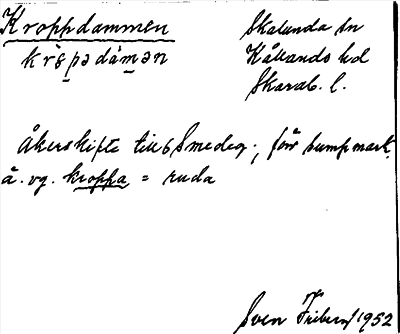 Kroppdammen
Skalunda sn
krɔ̀pədàmən
Kållands hd
Skarab. l.
Åkerskifte till Smedeg., förr sumpmark.
å. vg. kroppa = ruda
Sven 1952